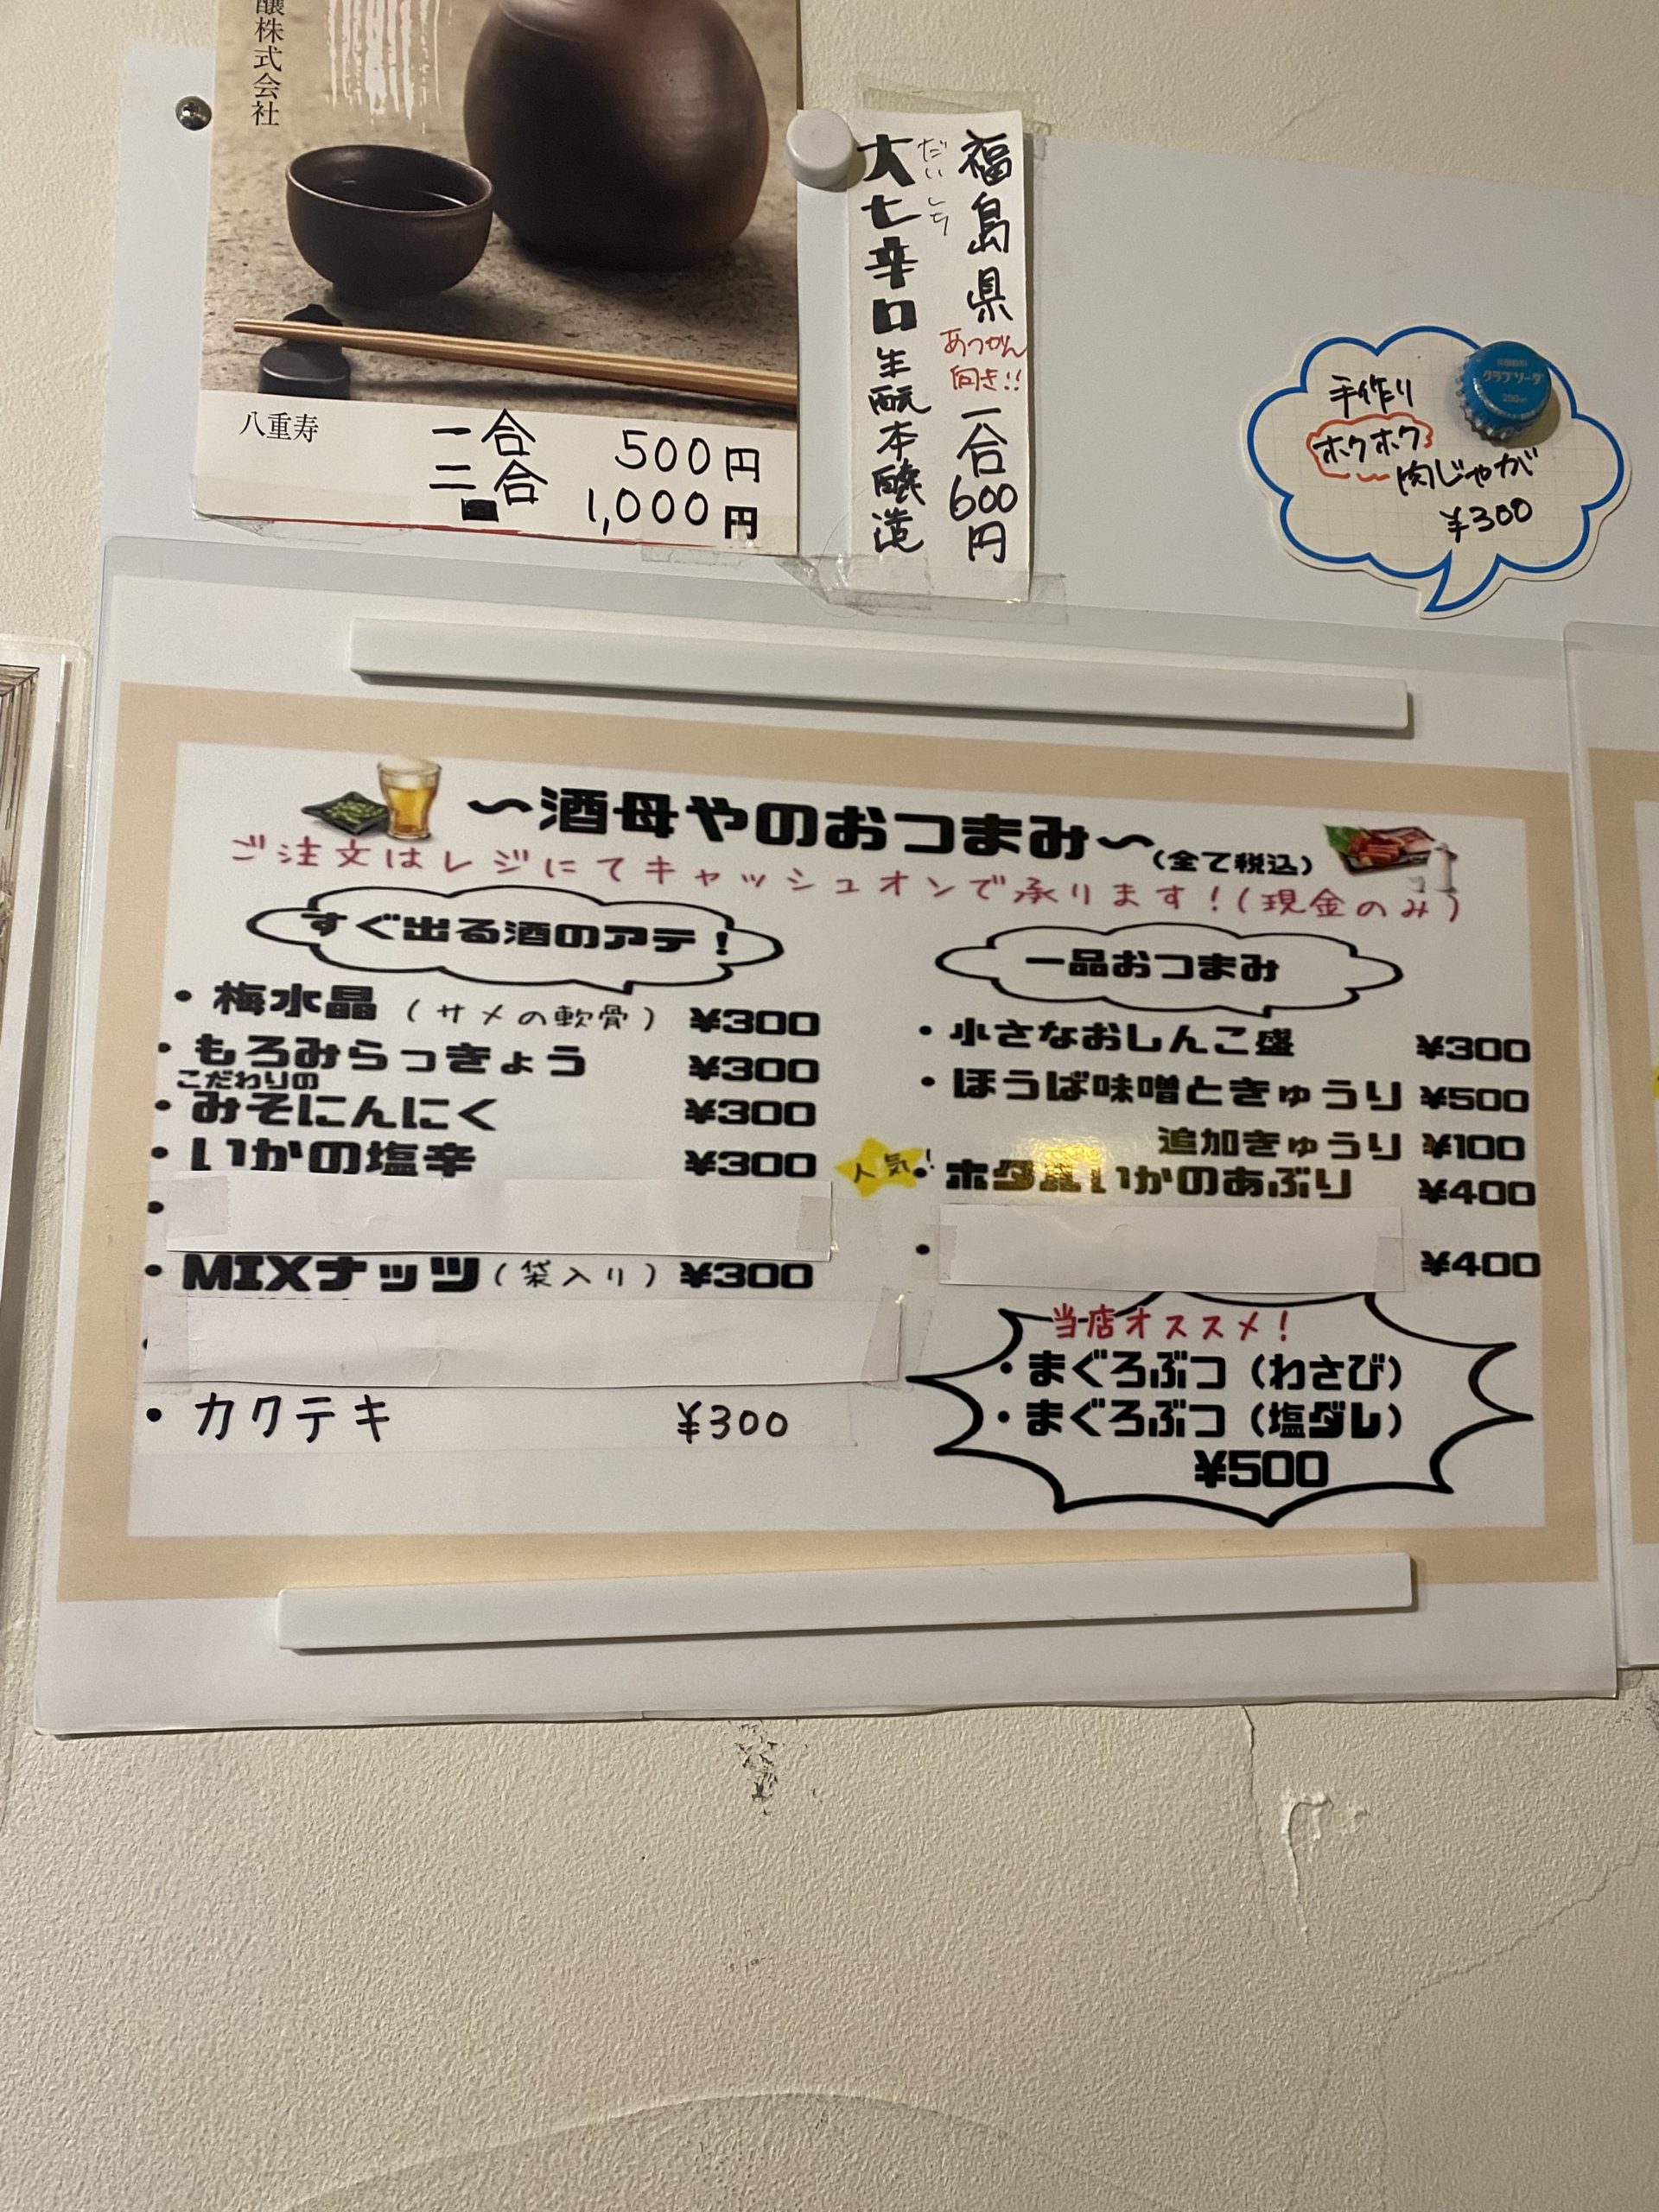 醸株式会社
八重寿
一合 500円
二合 1,000円
福島県 あつかん向き!! 一合600円
だいしち
大七辛口生酛本醸造
手作り
ホクホク
肉じゃが
¥300
クラブソーダ
~酒母やのおつまみ~(全て税込)
ご注文はレジにてキャッシュオンで承ります!(現金のみ)
すぐ出る酒のアテ!
・梅水晶(サメの軟骨) ¥300
・もろみらっきょう ¥300
こだわりの
・みそにんにく ¥300
・いかの塩辛 ¥300
・
・MIXナッツ(袋入り) ¥300
・カクテキ ¥300
一品おつまみ
・小さなおしんこ盛 ¥300
・ほうば味噌ときゅうり ¥500
追加きゅうり ¥100
人気!
・ホタルいかのあぶり ¥400
・ ¥400
当店オススメ!
・まぐろぶつ(わさび)
・まぐろぶつ(塩ダレ)
¥500